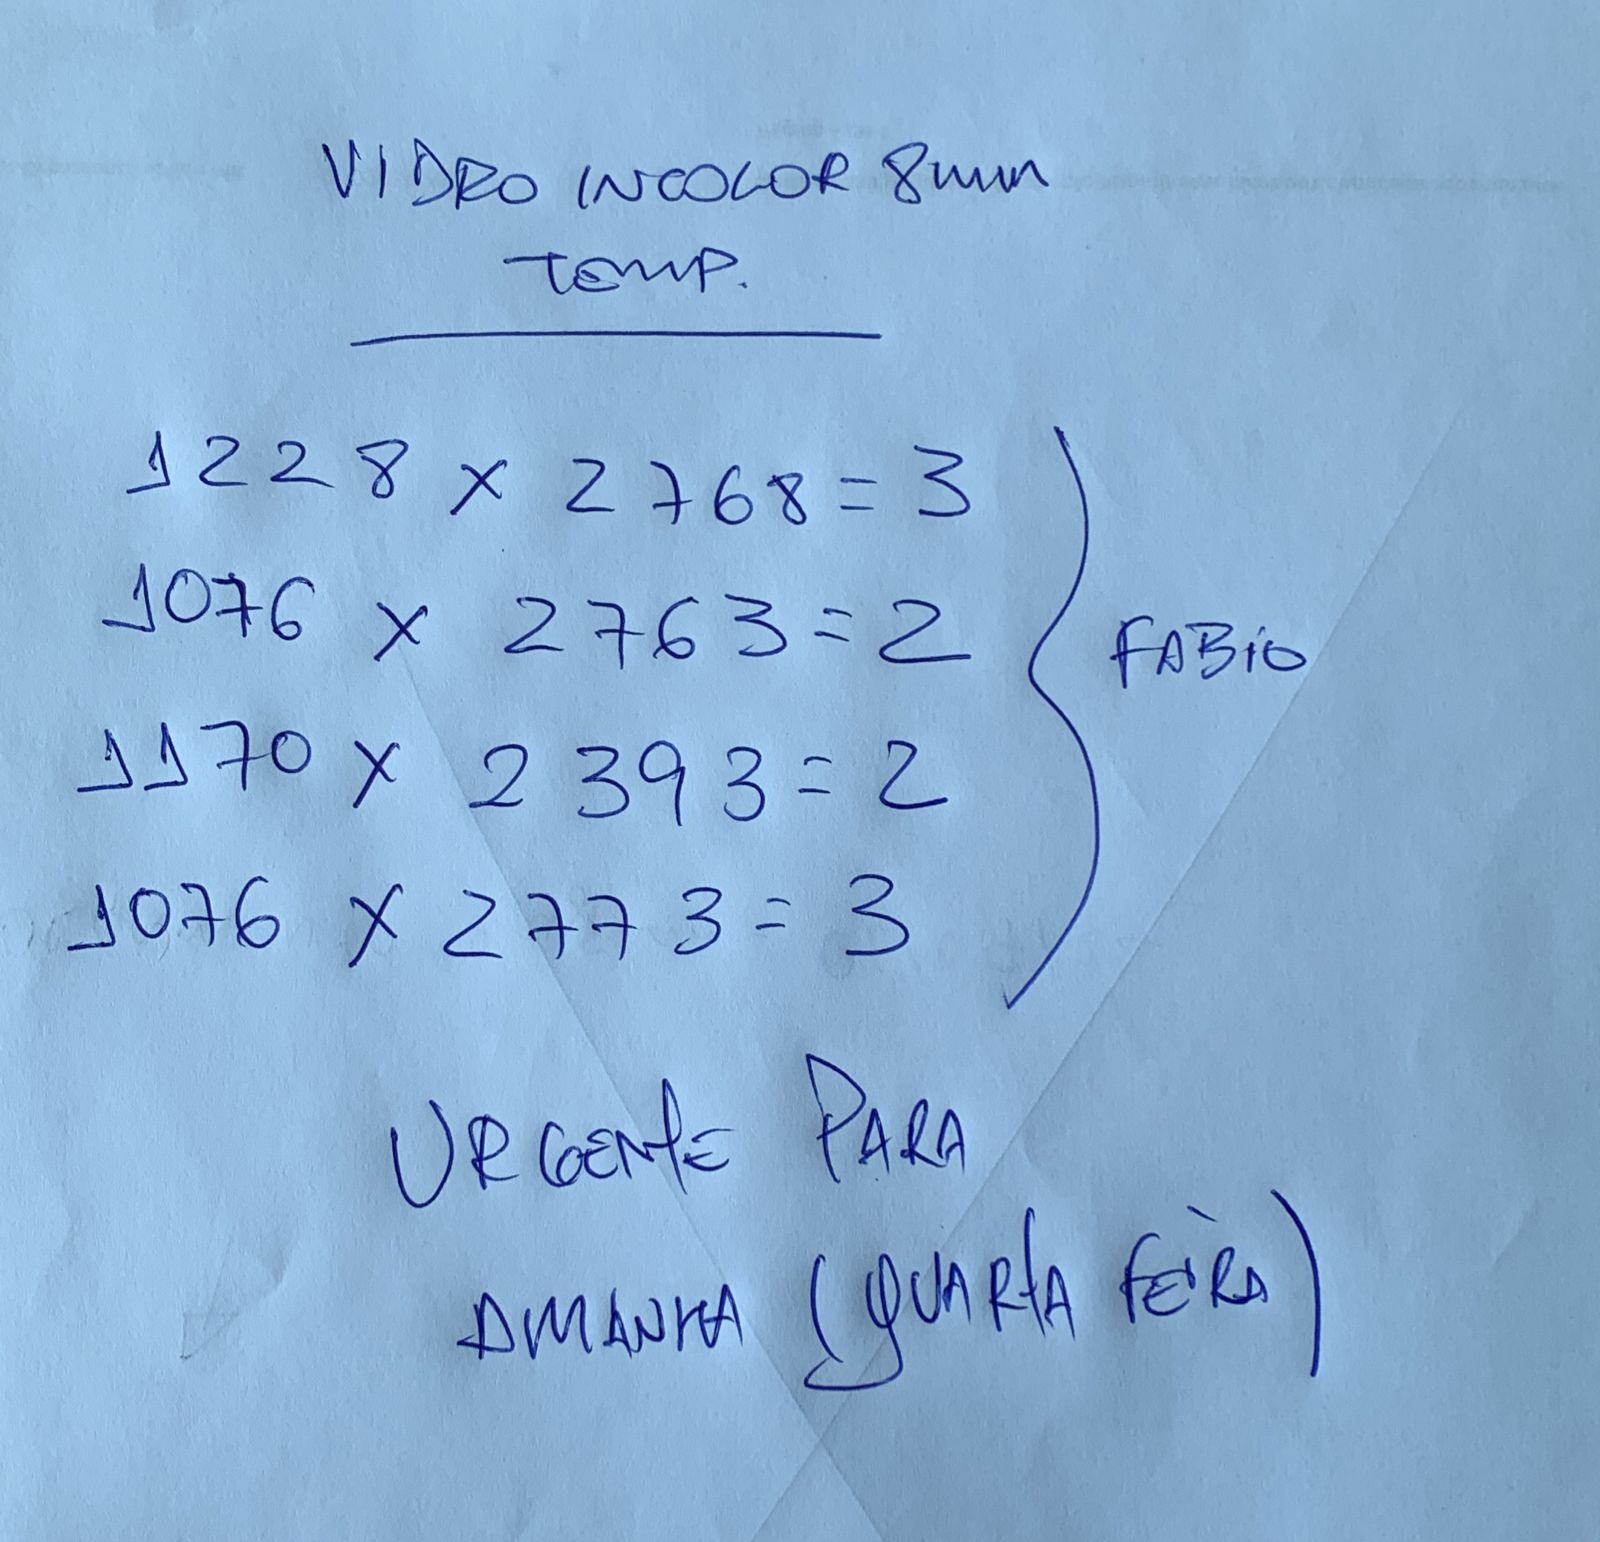 VIDRO INCOLOR 8mm
TEMP.
1228 x 2768 = 3
1076 x 2763 = 2
1170 x 2393 = 2
1076 x 2773 = 3
FABIO
URGENTE PARA
AMANHA (QUARTA FEIRA)